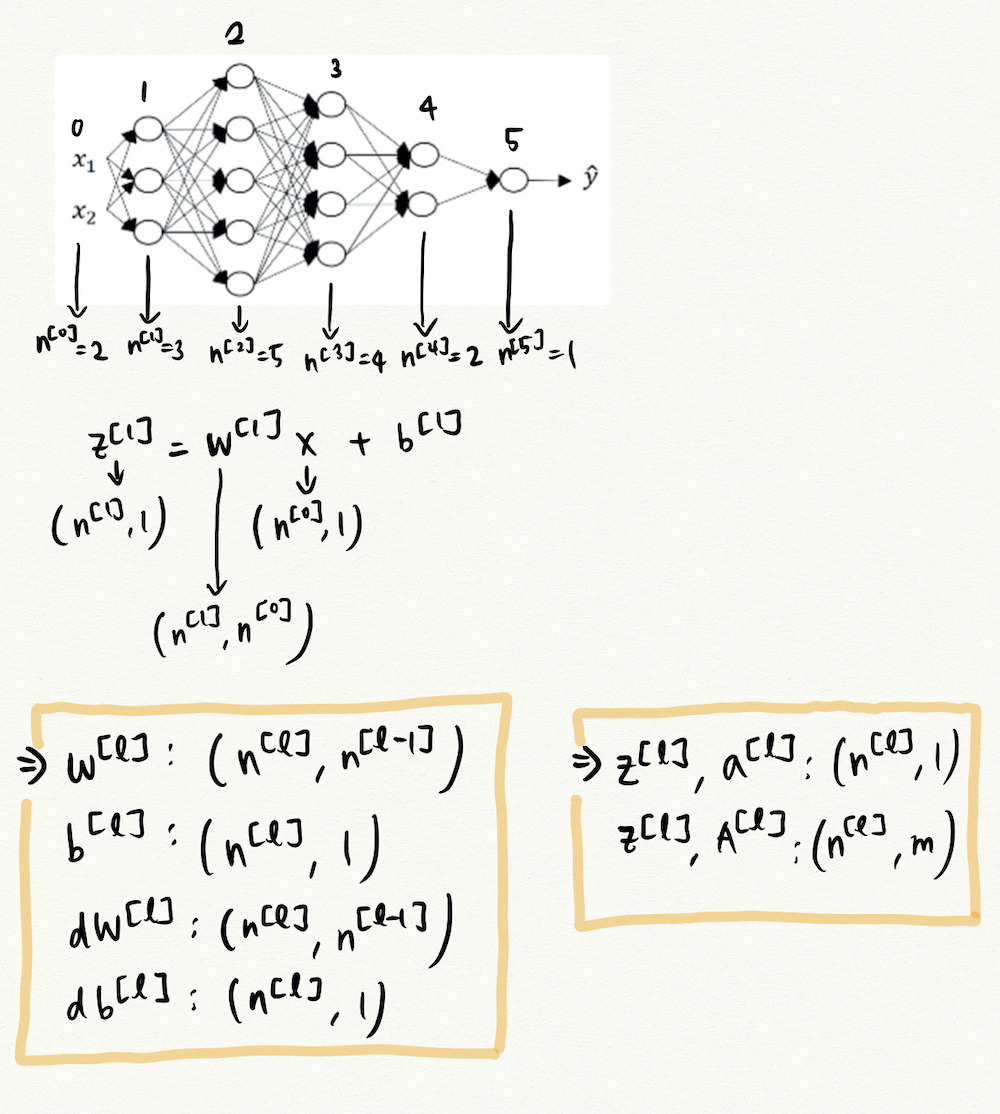 2
3
1
4
0
5
x₁
ŷ
x₂
n^[0]=2 n^[1]=3 n^[2]=5 n^[3]=4 n^[4]=2 n^[5]=1
z^[1] = W^[1] x + b^[1]
(n^[1], 1) (n^[0], 1)
(n^[1], n^[0])
⇒ W^[l] : (n^[l], n^[l-1])
b^[l] : (n^[l], 1)
dW^[l] : (n^[l], n^[l-1])
db^[l] : (n^[l], 1)
⇒ z^[l], a^[l] : (n^[l], 1)
Z^[l], A^[l] : (n^[l], m)